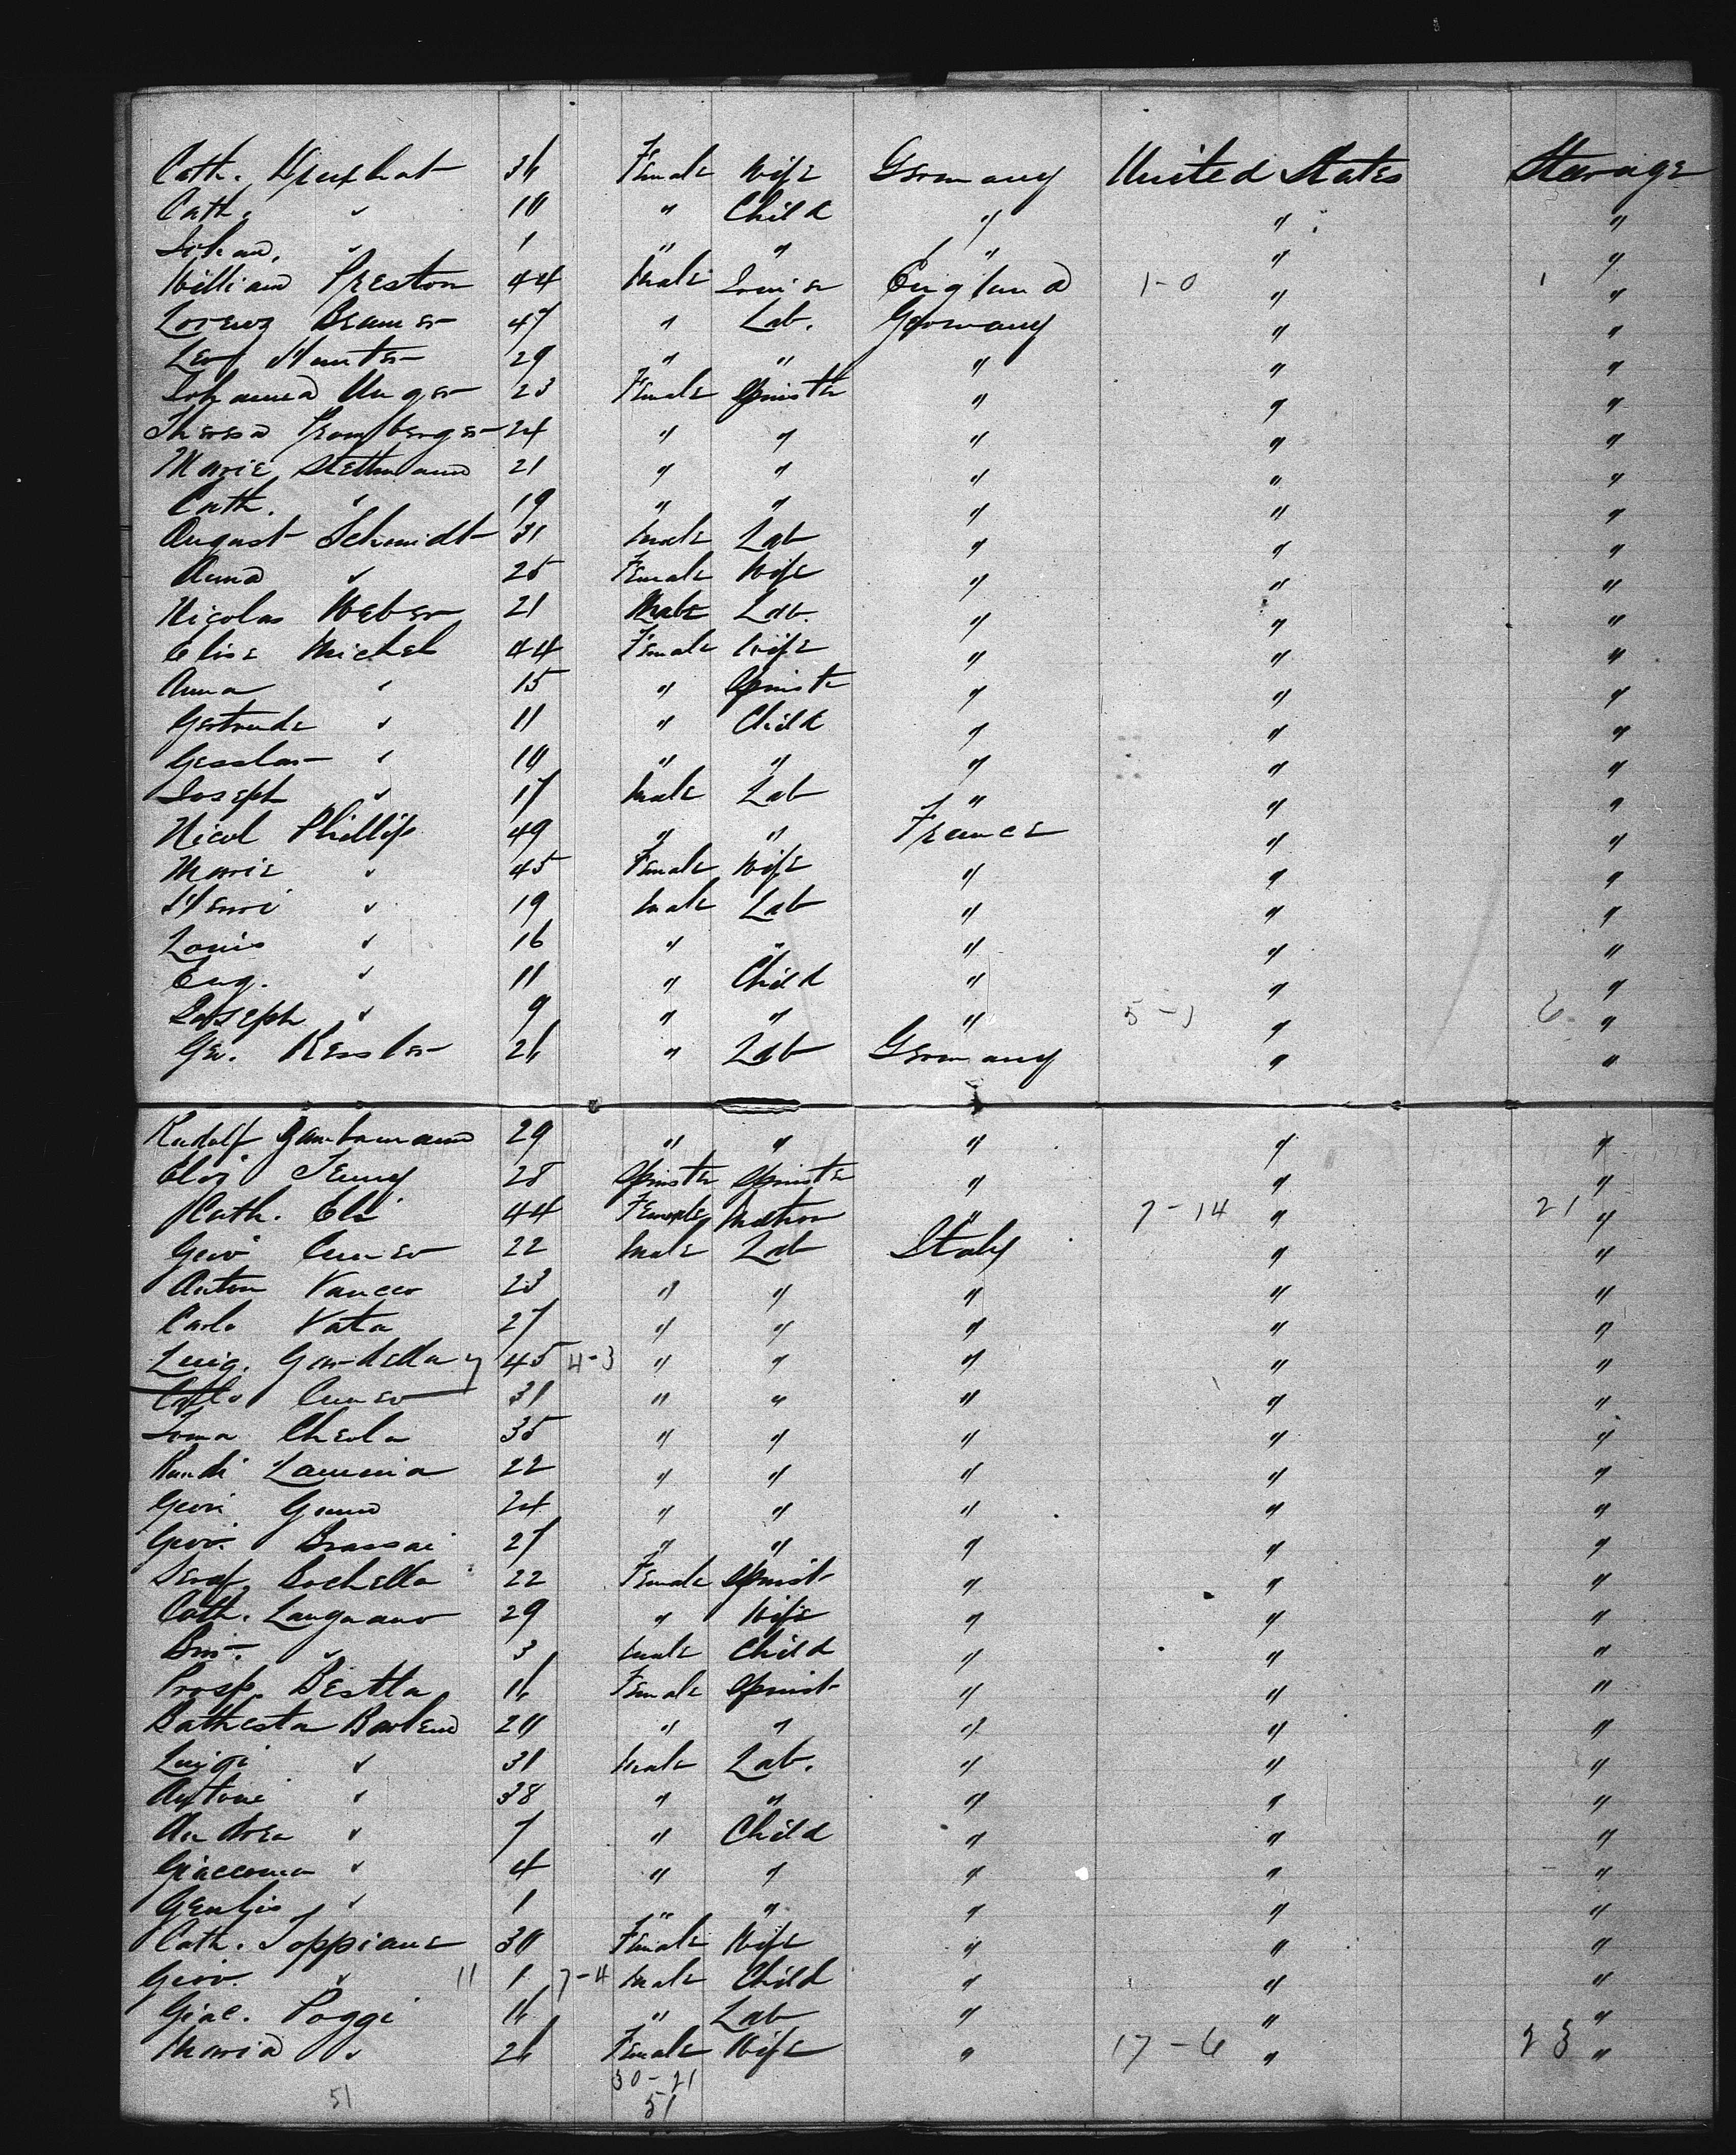 Cath. 36 Female Wife Germany United States Steerage
Cath. " 10 " Child " " "
Johan. " 1 " " " " "
William Preston 44 Male England 1-0 " 1 "
Lorenz Beamer 47 " Lab. Germany " "
Leo Hunter 29 " " " " "
Johanna Unger 23 Female Spinstr " " "
Theresa Promberger 24 " " " " "
Marie Stettmann 21 " " " " "
Cath. " 19 " " " " "
August Schmidt 31 Male Lab " " "
Anna " 25 Female Wife " " "
Nicolas Weber 21 Male Lab. " " "
Elise Michel 44 Female Wife " " "
Anna " 15 " Spinstr " " "
Gertrude " 11 " Child " " "
" 10 " " " " "
Joseph " 17 Male Lab " " "
Nicol Phillip 49 " " France " "
Marie " 45 Female Wife " " "
Henri " 19 Male Lab " " "
Louis " 16 " " " " "
Eug. " 11 " Child " " "
Joseph " 9 " " " 5-1 " 6 "
Geo. Kessler 26 " Lab Germany " "
Rudolf 29 " " " " "
Eliz Jenny 28 Spinstr Spinstr " " "
Cath. Els 44 Female Matron " 7-14 " 21 "
Giov Cuneo 22 Male Lab Italy " "
Anton 23 " " " " "
Carlo Vata 27 " " " " "
Luig. Gardella 7 45 4-3 " " " " "
Carlo Cuneo 31 " " " " "
Toma Cheola 35 " " " " "
22 " " " " "
Giovi 24 " " " " "
Giov. Brassai 27 " " " " "
Seraf. Rochella 22 Female Spinst " " "
Cath. Langnano 29 " Wife " " "
" 3 Male Child " " "
Prosp. Bestta 16 Female Spinst " " "
20 " " " " "
Luigi " 31 Male Lab. " " "
Antoni " 38 " " " " "
Andrea " 7 " Child " " "
Giaccoma " 4 " " " " "
" 1 " " " " "
Cath. Toppiane 30 Female Wife " " "
Giov. " 11 1 7-4 Male Child " " "
Giac. Poggi 16 " Lab " " "
Maria " 26 Female Wife " 17-6 " 23 "
30-21
51 51